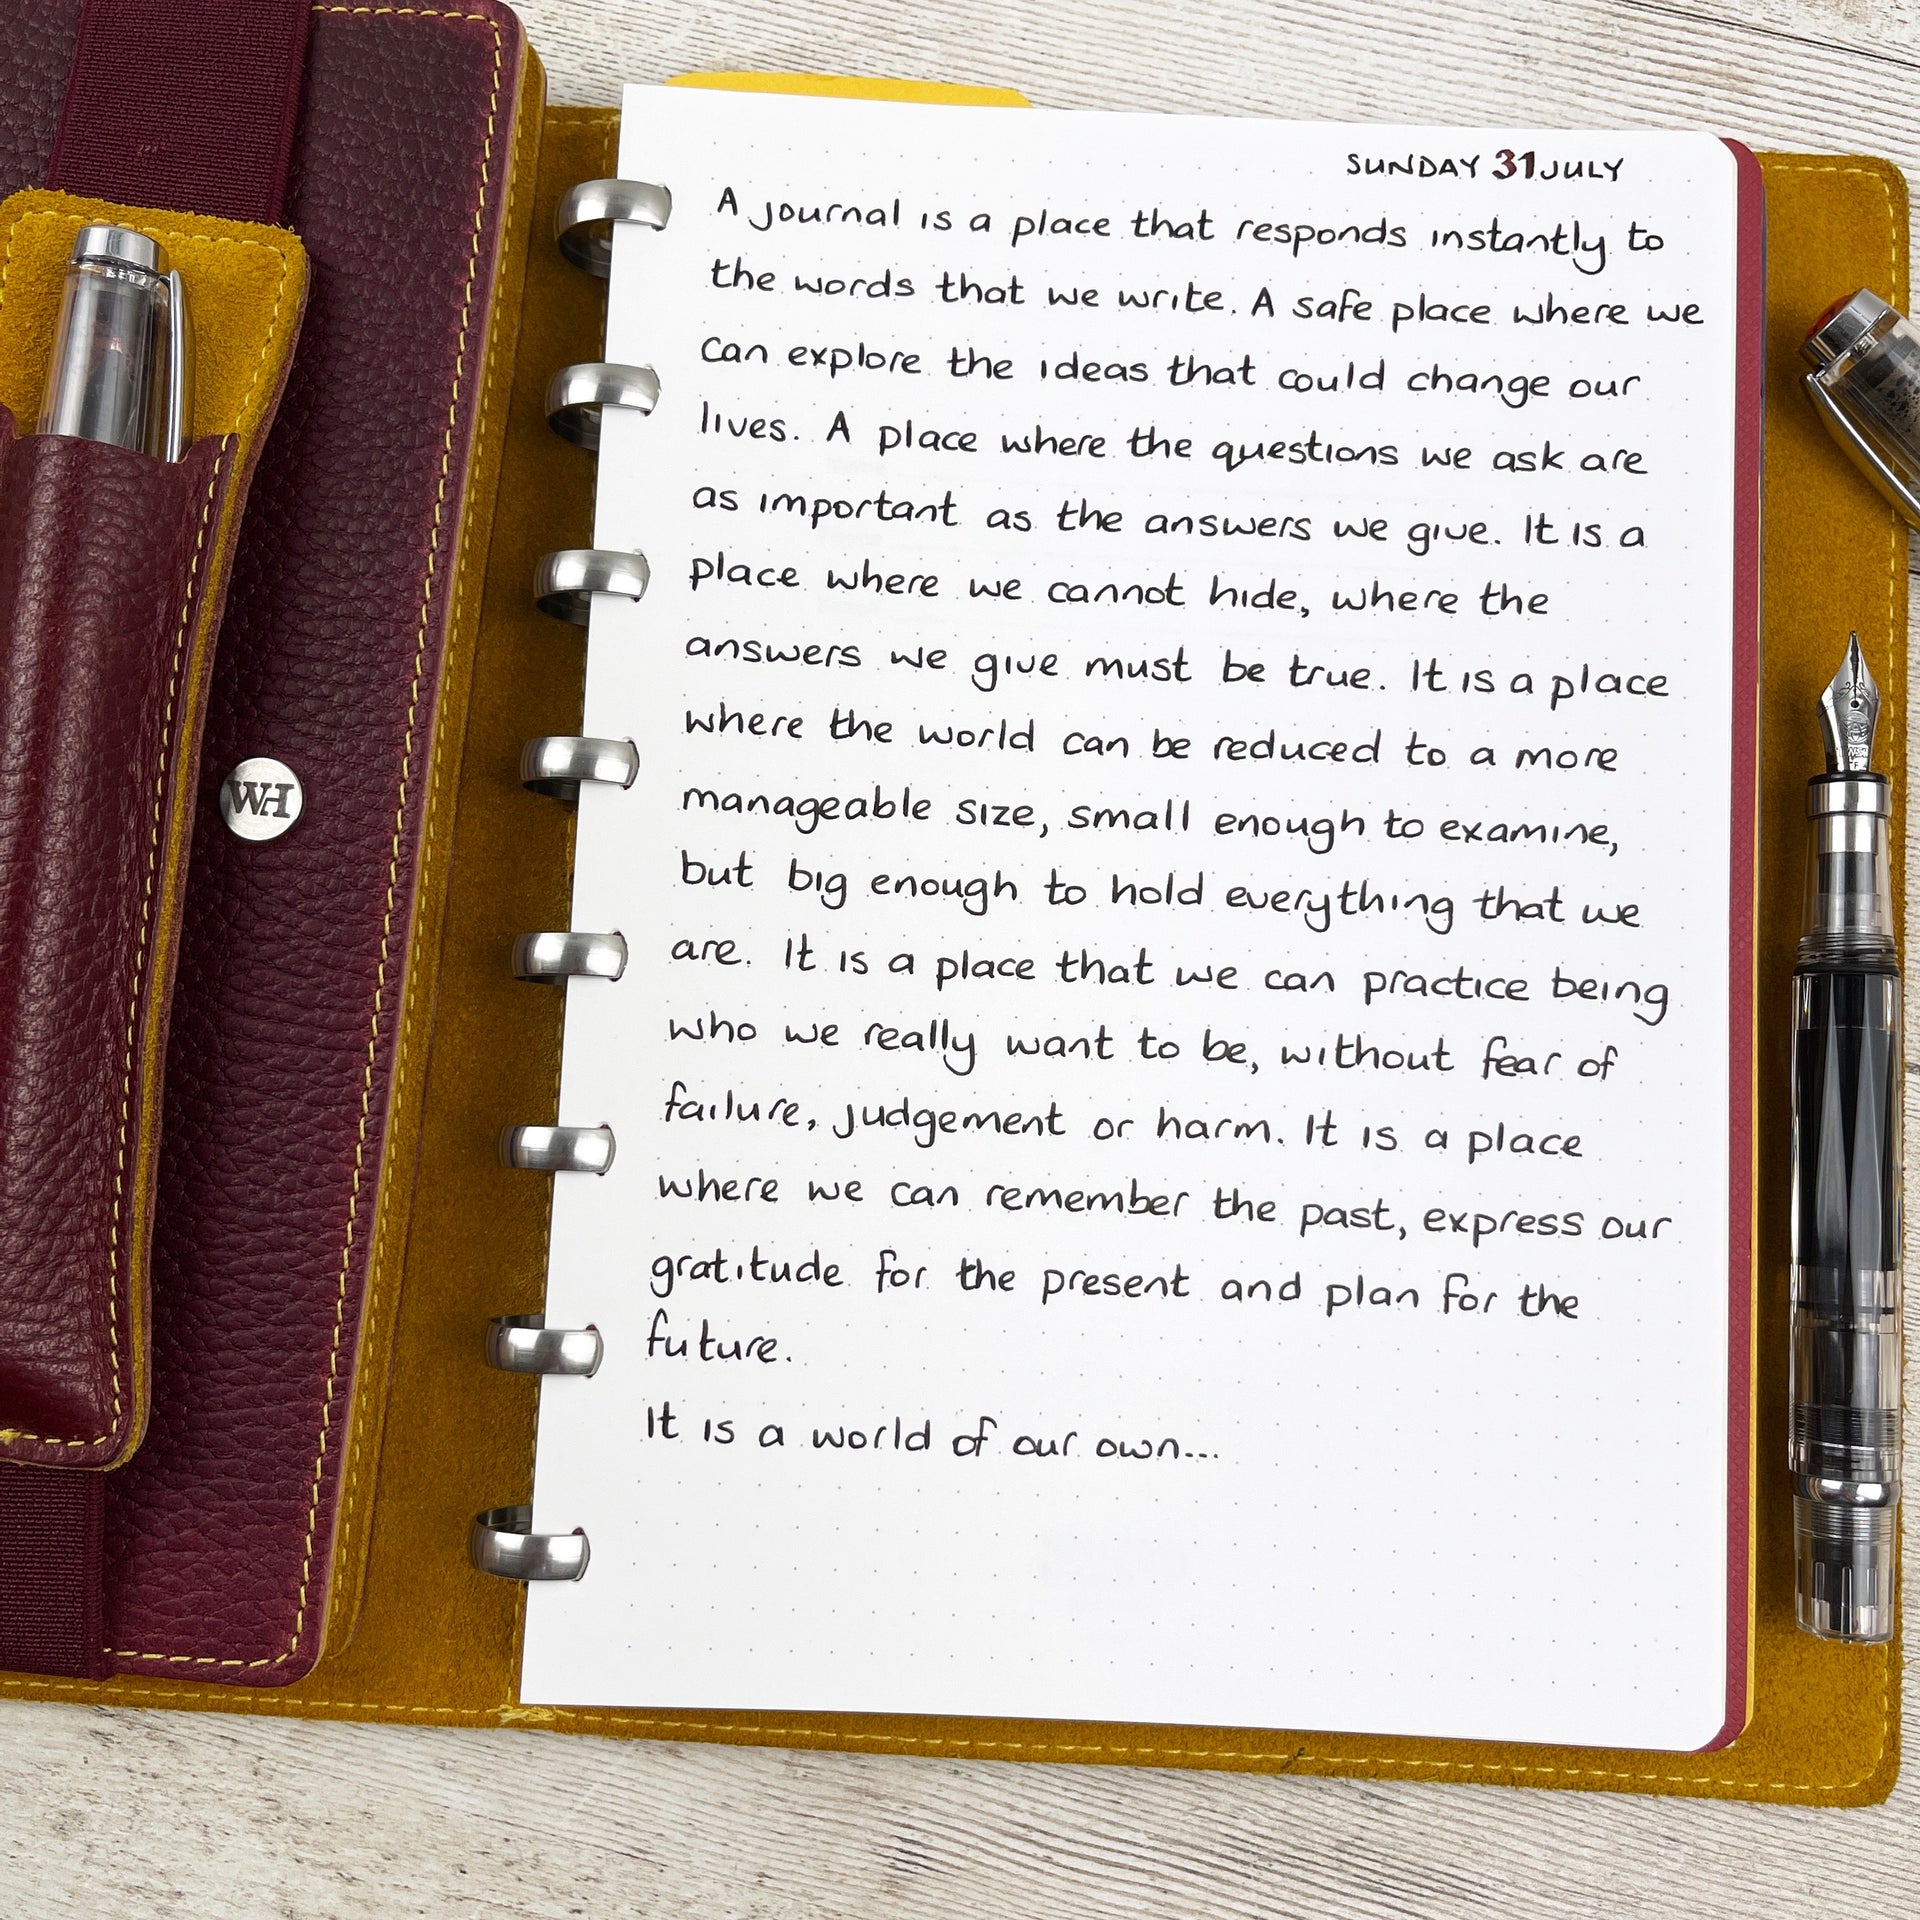 SUNDAY 31 JULY
A journal is a place that responds instantly to
the words that we write. A safe place where we
can explore the ideas that could change our
lives. A place where the questions we ask are
as important as the answers we give. It is a
place where we cannot hide, where the
answers we give must be true. It is a place
where the world can be reduced to a more
manageable size, small enough to examine,
but big enough to hold everything that we
are. It is a place that we can practice being
who we really want to be, without fear of
failure, judgement or harm. It is a place
where we can remember the past, express our
gratitude for the present and plan for the
future.
It is a world of our own...
WH